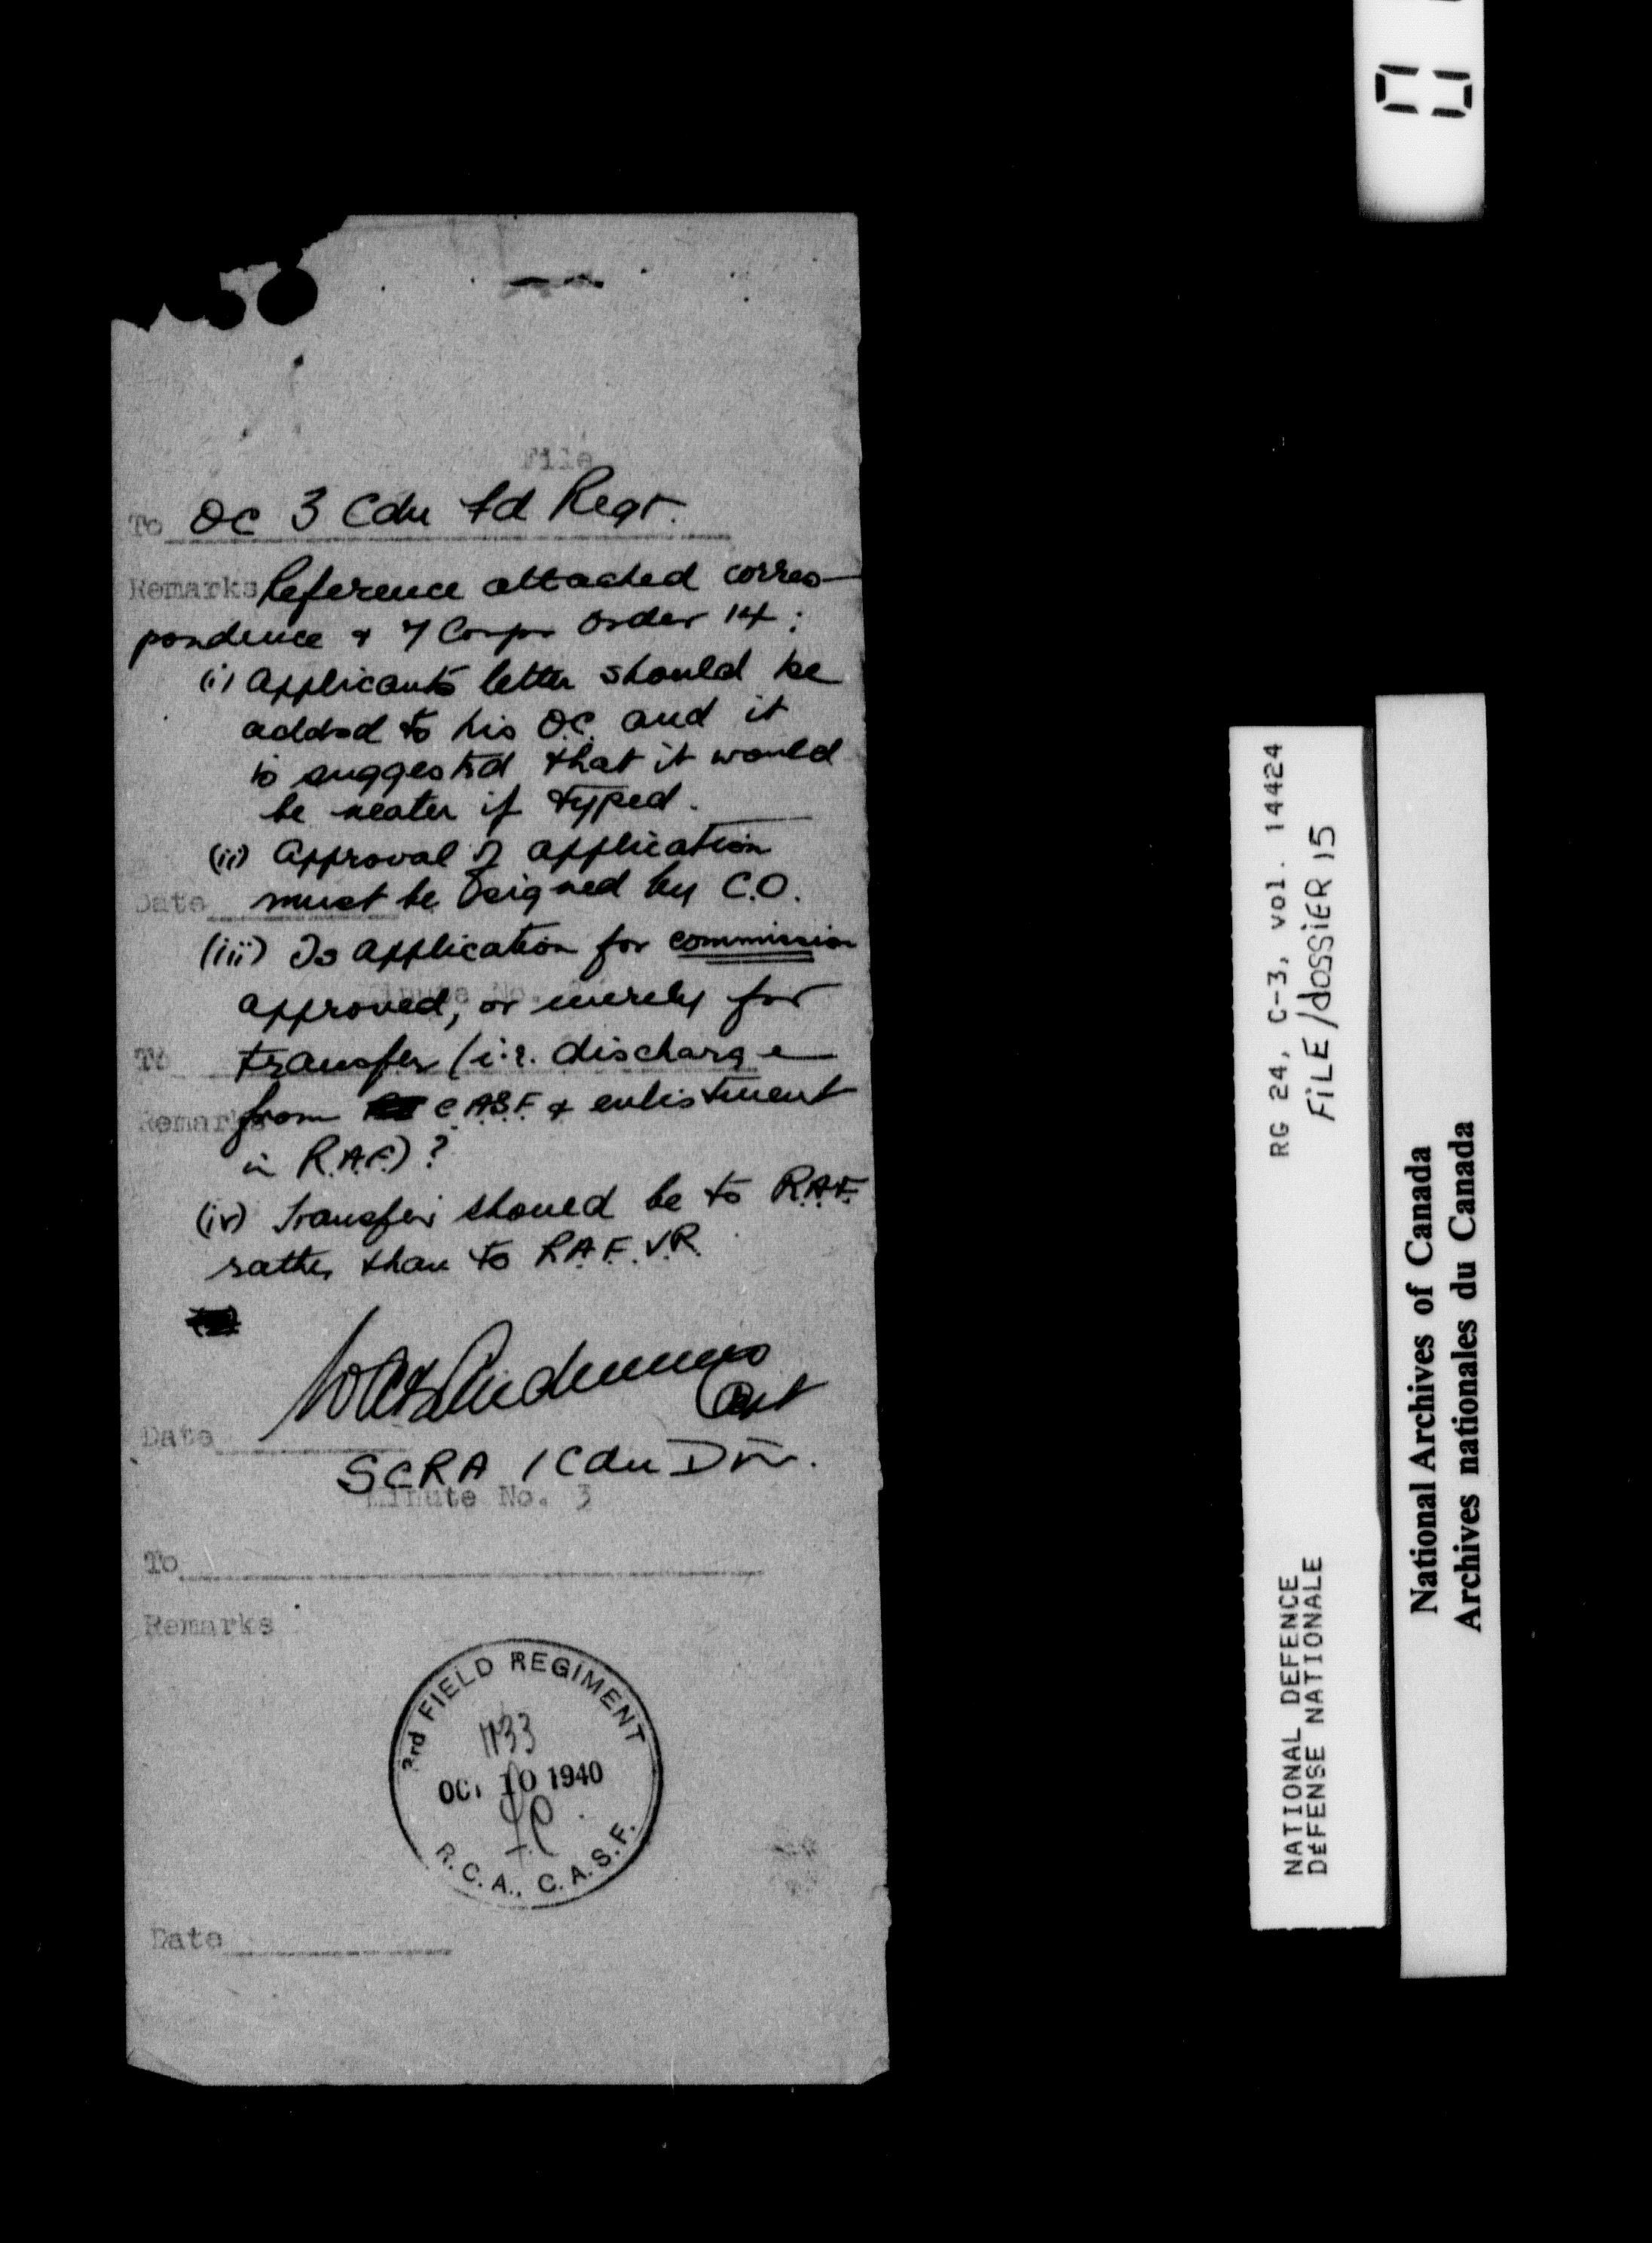 File
To OC 3 Cdn Fd Regt.
Remarks Reference attached corres-
pondence & 7 Corps Order 14:
(i) Applicants letter should be
addsd to his O.C. and it
is suggested that it would
be neater if typed.
(ii) Approval of application
Date must be signed by C.O.
(iii) Is application for commission
approved, or merely for
Minute No.
To transfer (i.e. discharge
Remarks from C.A.S.F. & enlistment
in R.A.F.)?
(iv) Transfer should be to R.A.F.
rather than to R.A.F.V.R.
Capt
Date
SCRA 1 Cdn Div.
Minute No. 3
To
Remarks
3rd FIELD REGIMENT
1133
OCT 10 1940
R.C.A., C.A.S.F.
Date
RG 24, C-3, vol. 14424
FILE/dOSSiER 15
NATIONAL DEFENCE
DéFENSE NATIONALE
National Archives of Canada
Archives nationales du Canada